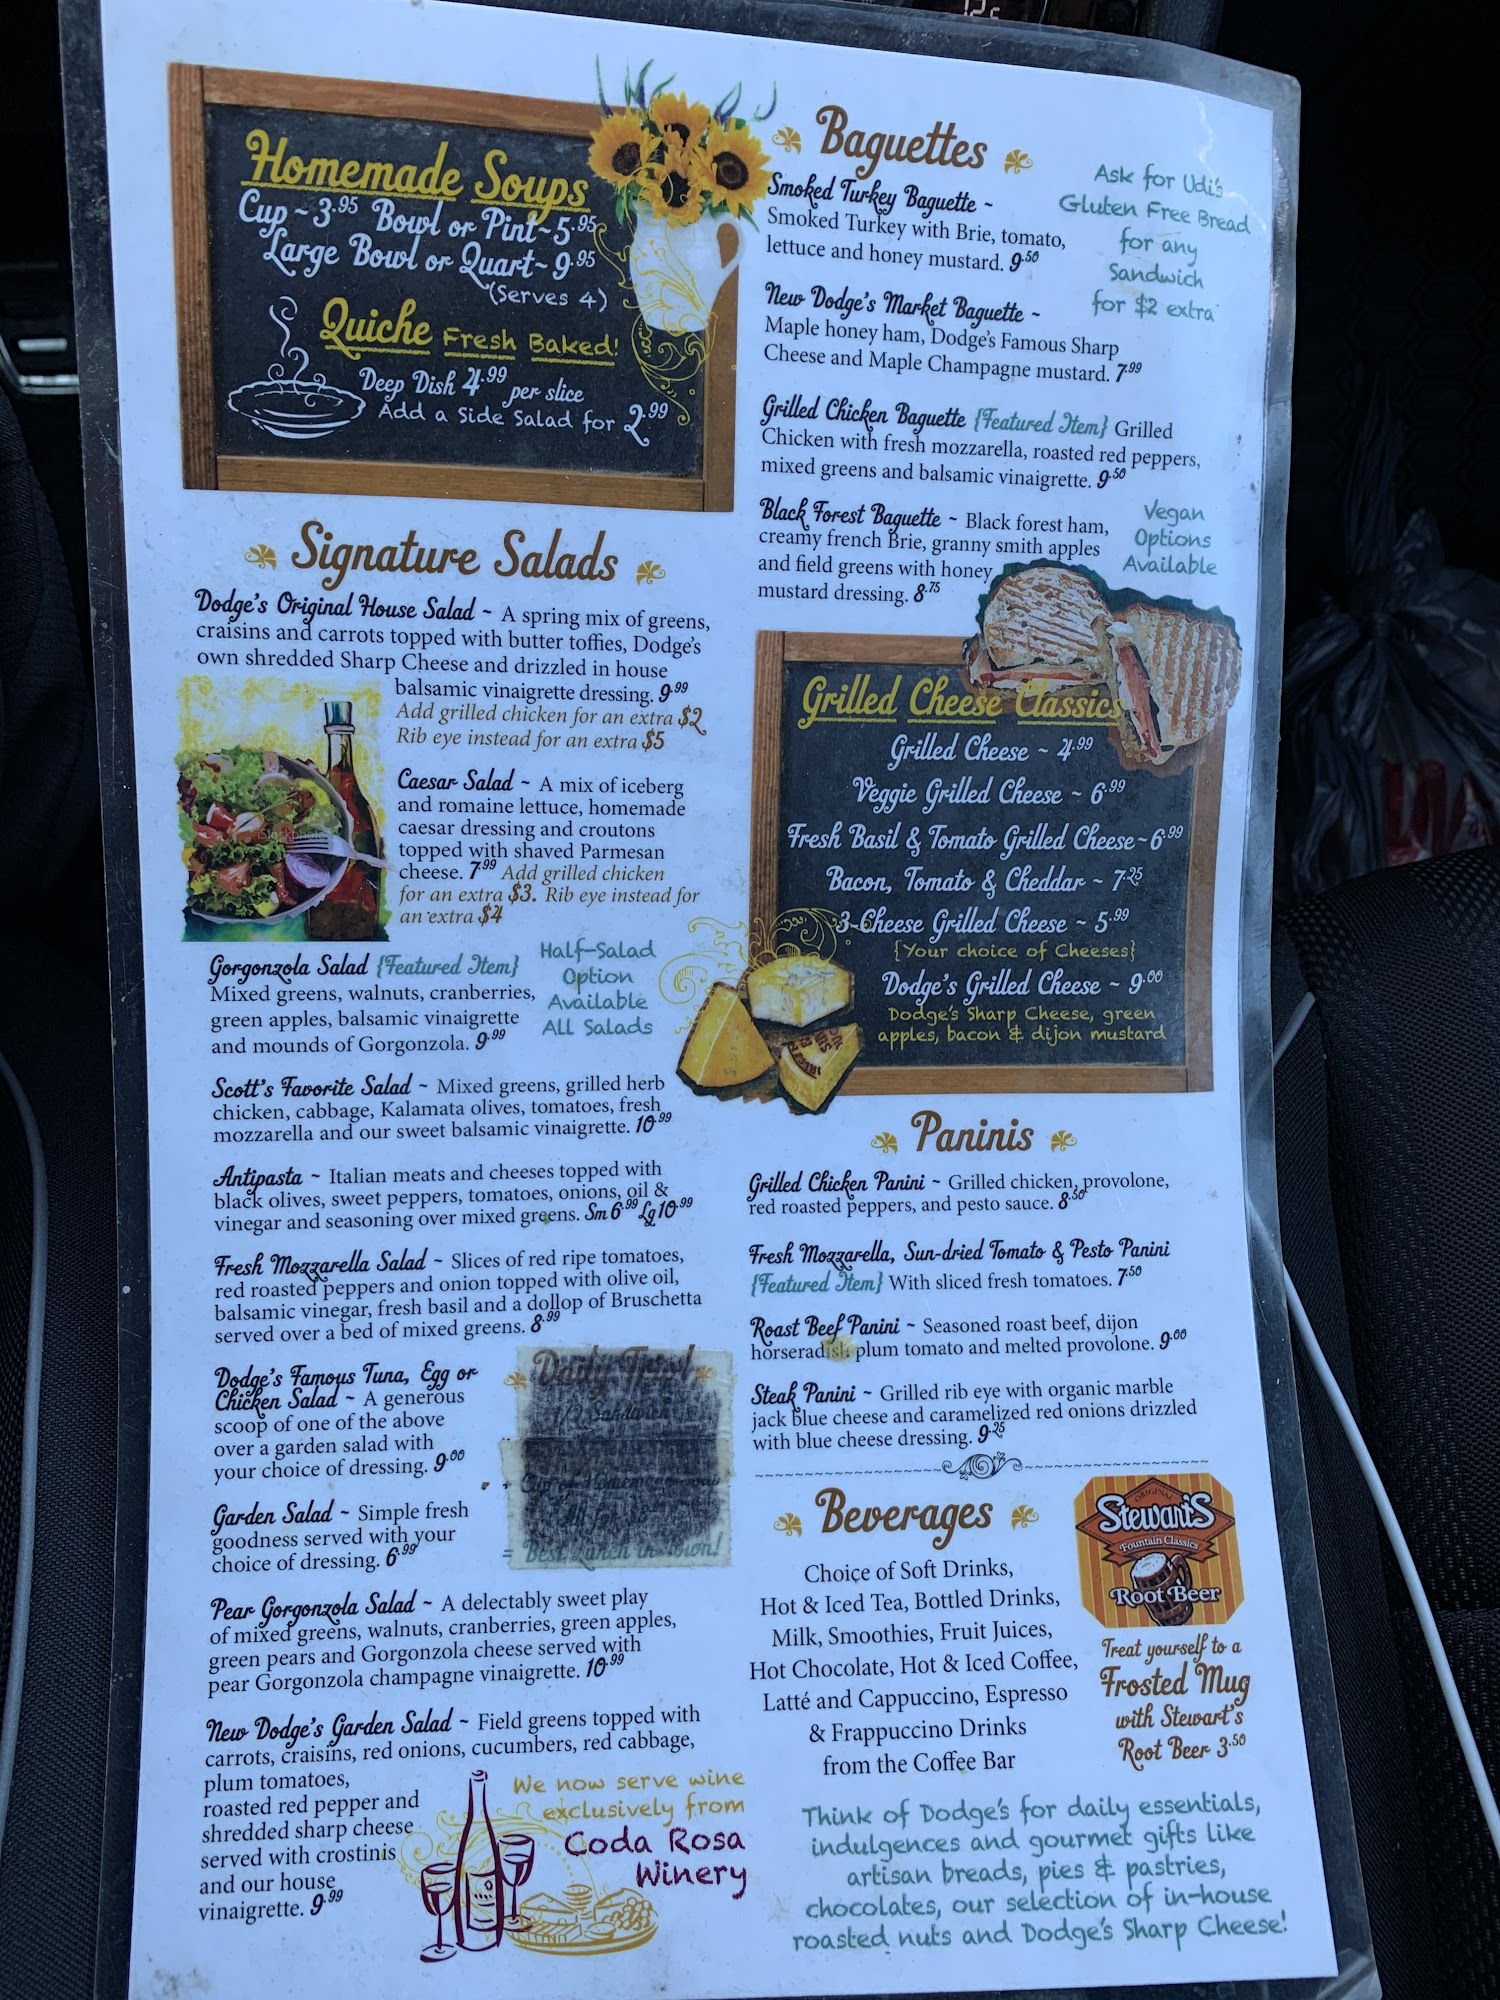 Homemade Soups
Cup ~ 3.95 Bowl or Pint ~ 5.95
Large Bowl or Quart ~ 9.95
(Serves 4)
Quiche Fresh Baked!
Deep Dish 4.99 per slice
Add a Side Salad for 2.99
Signature Salads
Dodge's Original House Salad ~ A spring mix of greens,
craisins and carrots topped with butter toffies, Dodge's
own shredded Sharp Cheese and drizzled in house
balsamic vinaigrette dressing. 9.99
Add grilled chicken for an extra $2
Rib eye instead for an extra $5
Caesar Salad ~ A mix of iceberg
and romaine lettuce, homemade
caesar dressing and croutons
topped with shaved Parmesan
cheese. 7.99 Add grilled chicken
for an extra $3. Rib eye instead for
an extra $4
iStockphoto
Gorgonzola Salad {Featured Item}
Mixed greens, walnuts, cranberries,
green apples, balsamic vinaigrette
and mounds of Gorgonzola. 9.99
Half-Salad
Option
Available
All Salads
Scott's Favorite Salad ~ Mixed greens, grilled herb
chicken, cabbage, Kalamata olives, tomatoes, fresh
mozzarella and our sweet balsamic vinaigrette. 10.99
Antipasta ~ Italian meats and cheeses topped with
black olives, sweet peppers, tomatoes, onions, oil &
vinegar and seasoning over mixed greens. Sm 6.99 Lg 10.99
Fresh Mozzarella Salad ~ Slices of red ripe tomatoes,
red roasted peppers and onion topped with olive oil,
balsamic vinegar, fresh basil and a dollop of Bruschetta
served over a bed of mixed greens. 8.99
Dodge's Famous Tuna, Egg or
Chicken Salad ~ A generous
scoop of one of the above
over a garden salad with
your choice of dressing. 9.00
1/2 Sandwich
= Best Lunch in Town!
Garden Salad ~ Simple fresh
goodness served with your
choice of dressing. 6.99
Pear Gorgonzola Salad ~ A delectably sweet play
of mixed greens, walnuts, cranberries, green apples,
green pears and Gorgonzola cheese served with
pear Gorgonzola champagne vinaigrette. 10.99
New Dodge's Garden Salad ~ Field greens topped with
carrots, craisins, red onions, cucumbers, red cabbage,
plum tomatoes,
roasted red pepper and
shredded sharp cheese
served with crostinis
and our house
vinaigrette. 9.99
We now serve wine
exclusively from
Coda Rosa
Winery
Baguettes
Smoked Turkey Baguette ~
Smoked Turkey with Brie, tomato,
lettuce and honey mustard. 9.50
Ask for Udi's
Gluten Free Bread
for any
Sandwich
for $2 extra
New Dodge's Market Baguette ~
Maple honey ham, Dodge's Famous Sharp
Cheese and Maple Champagne mustard. 7.99
Grilled Chicken Baguette {Featured Item} Grilled
Chicken with fresh mozzarella, roasted red peppers,
mixed greens and balsamic vinaigrette. 9.50
Black Forest Baguette ~ Black forest ham,
creamy french Brie, granny smith apples
and field greens with honey
mustard dressing. 8.75
Vegan
Options
Available
Grilled Cheese Classics
Grilled Cheese ~ 4.99
Veggie Grilled Cheese ~ 6.99
Fresh Basil & Tomato Grilled Cheese ~ 6.99
Bacon, Tomato & Cheddar ~ 7.25
3-Cheese Grilled Cheese ~ 5.99
{Your choice of Cheeses}
Dodge's Grilled Cheese ~ 9.00
Dodge's Sharp Cheese, green
apples, bacon & dijon mustard
Paninis
Grilled Chicken Panini ~ Grilled chicken, provolone,
red roasted peppers, and pesto sauce. 8.50
Fresh Mozzarella, Sun-dried Tomato & Pesto Panini
{Featured Item} With sliced fresh tomatoes. 7.50
Roast Beef Panini ~ Seasoned roast beef, dijon
horseradish plum tomato and melted provolone. 9.00
Steak Panini ~ Grilled rib eye with organic marble
jack blue cheese and caramelized red onions drizzled
with blue cheese dressing. 9.25
Beverages
Choice of Soft Drinks,
Hot & Iced Tea, Bottled Drinks,
Milk, Smoothies, Fruit Juices,
Hot Chocolate, Hot & Iced Coffee,
Latté and Cappuccino, Espresso
& Frappuccino Drinks
from the Coffee Bar
ORIGINAL
Stewart's
Fountain Classics
Root Beer
Treat yourself to a
Frosted Mug
with Stewart's
Root Beer 3.50
Think of Dodge's for daily essentials,
indulgences and gourmet gifts like
artisan breads, pies & pastries,
chocolates, our selection of in-house
roasted nuts and Dodge's Sharp Cheese!